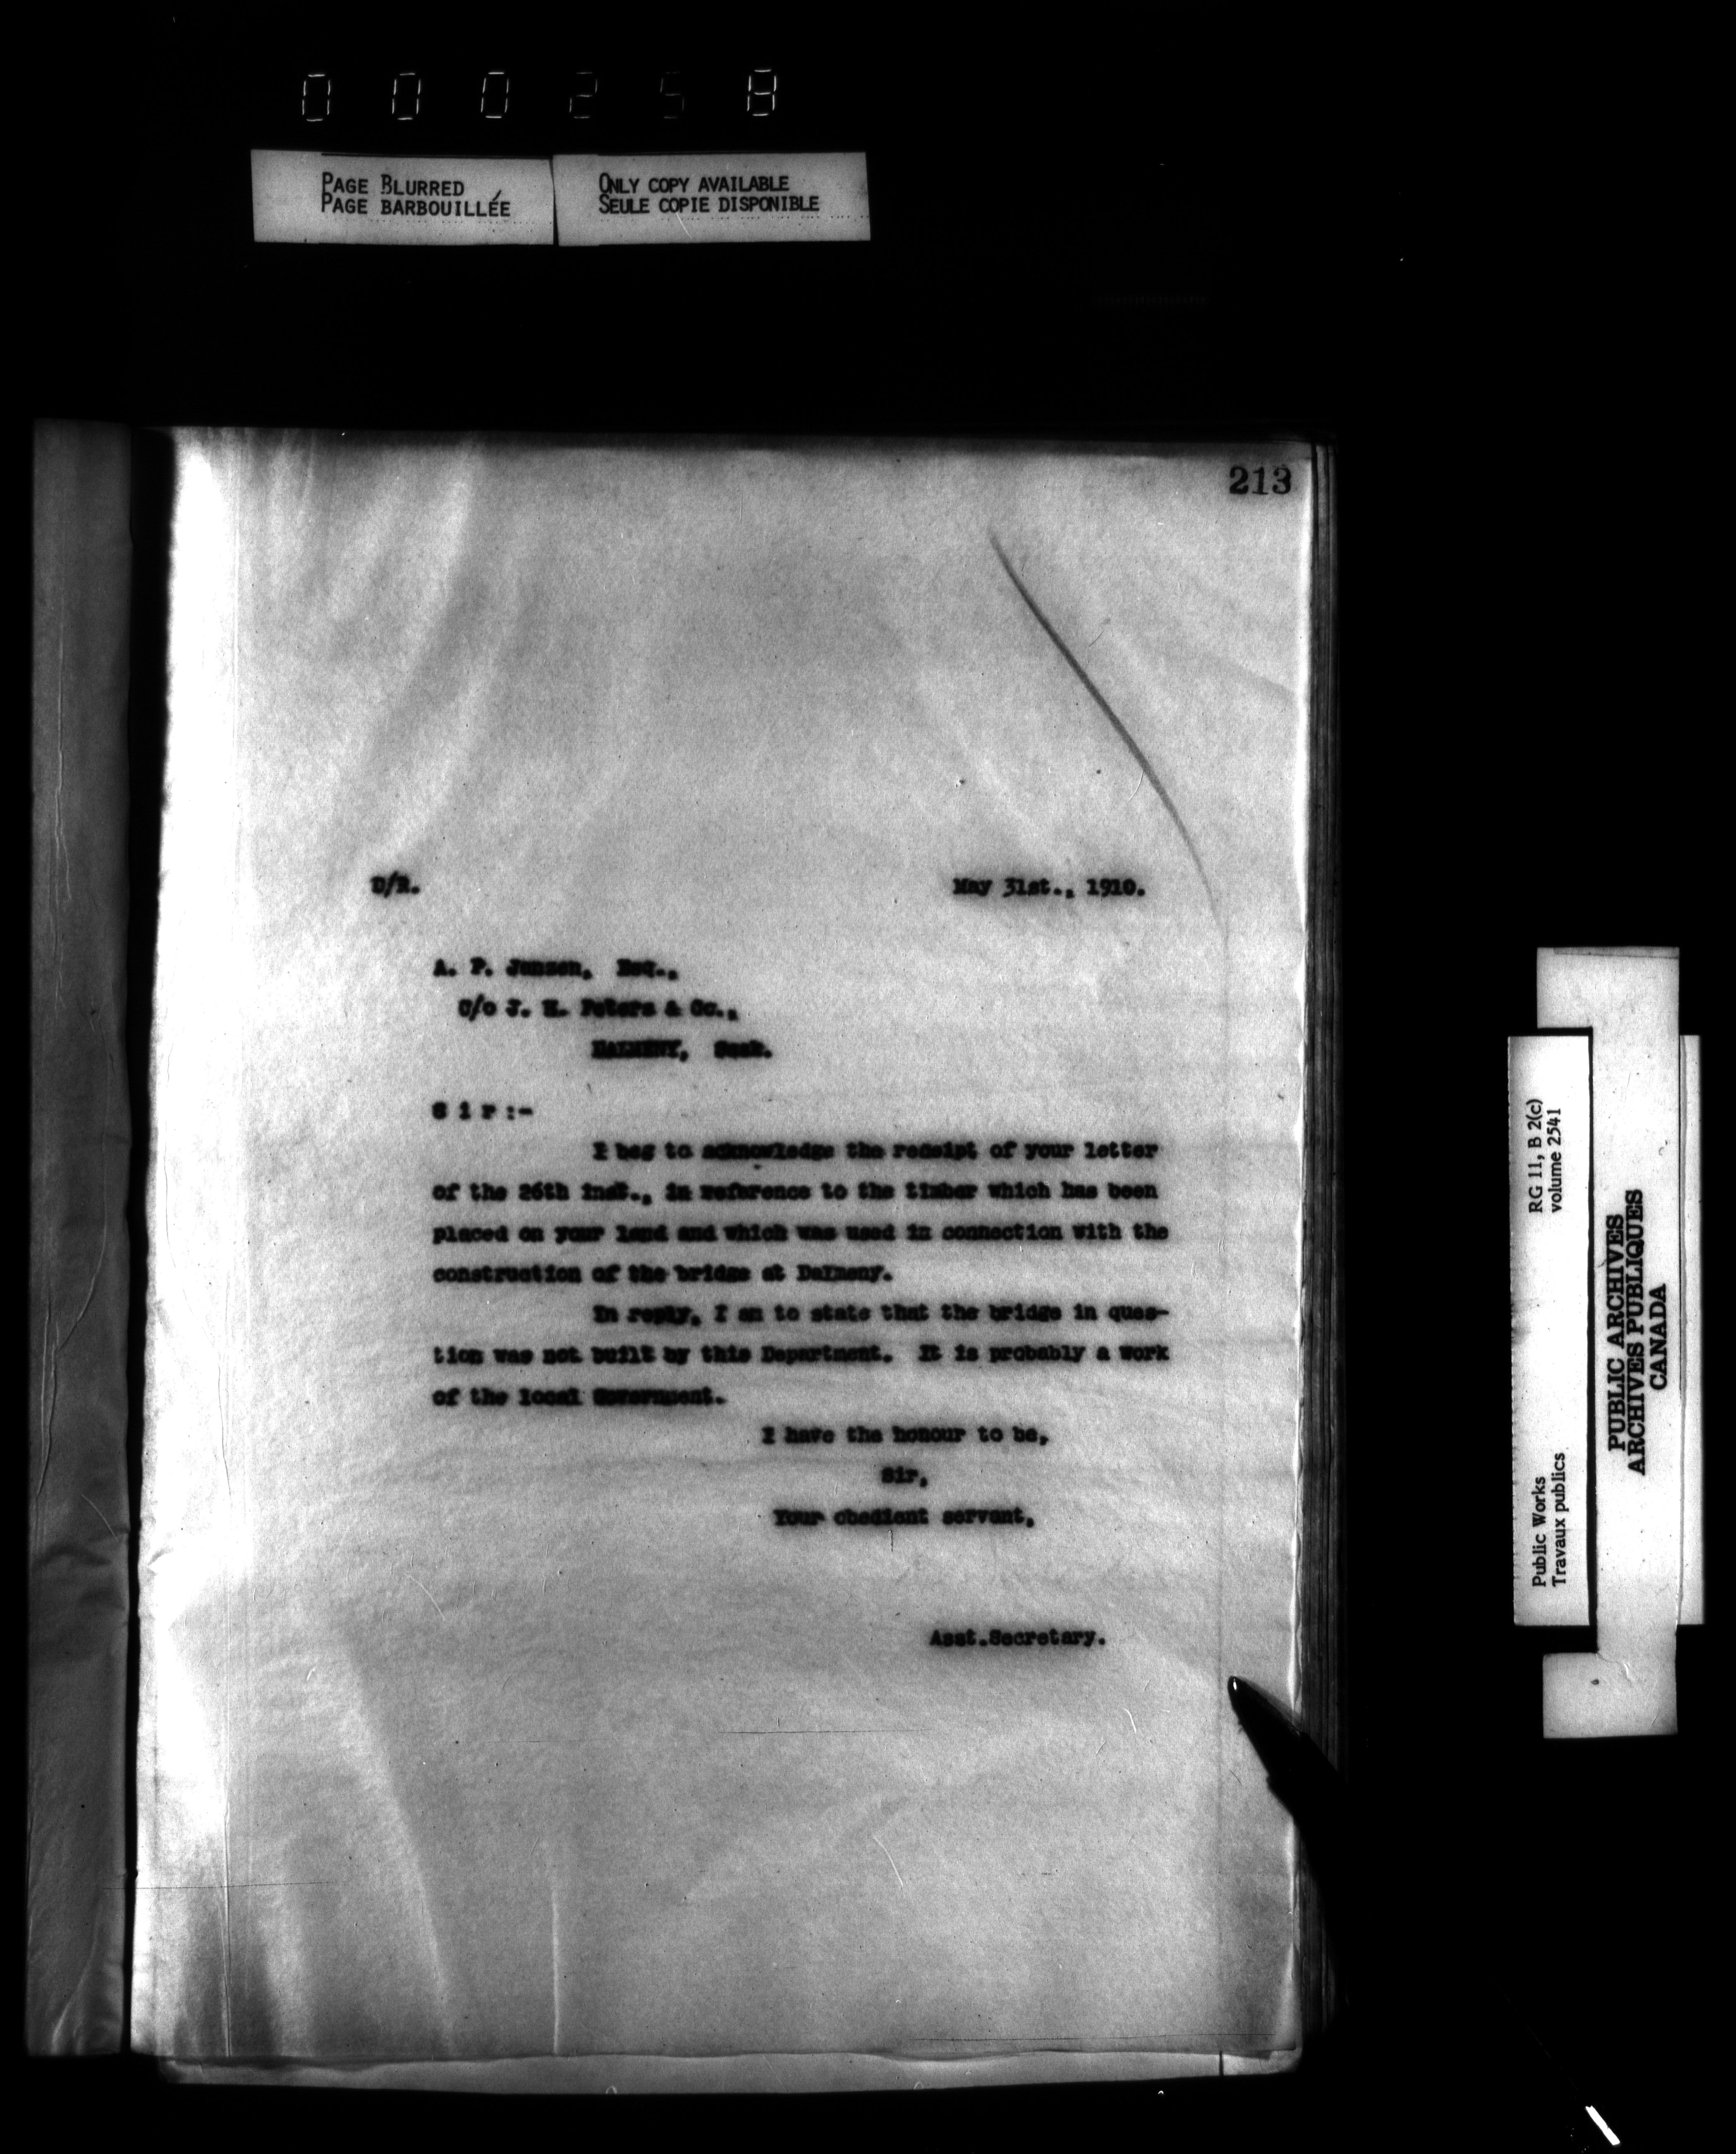 000258
PAGE BLURRED
PAGE BARBOUILLÉE
ONLY COPY AVAILABLE
SEULE COPIE DISPONIBLE
213
D/R.
May 31st., 1910.
A. P. Janzen, Esq.,
C/o J. H. Peters & Co.,
DALMENY, Sask.
S i r :-
I beg to acknowledge the receipt of your letter
of the 26th inst., in reference to the timber which has been
placed on your land and which was used in connection with the
construction of the bridge at Dalmeny.
In reply, I am to state that the bridge in ques-
tion was not built by this Department. It is probably a work
of the local Government.
I have the honour to be,
Sir,
Your obedient servant,
Asst.Secretary.
RG 11, B 2(c)
volume 2541
Public Works
Travaux publics
PUBLIC ARCHIVES
ARCHIVES PUBLIQUES
CANADA